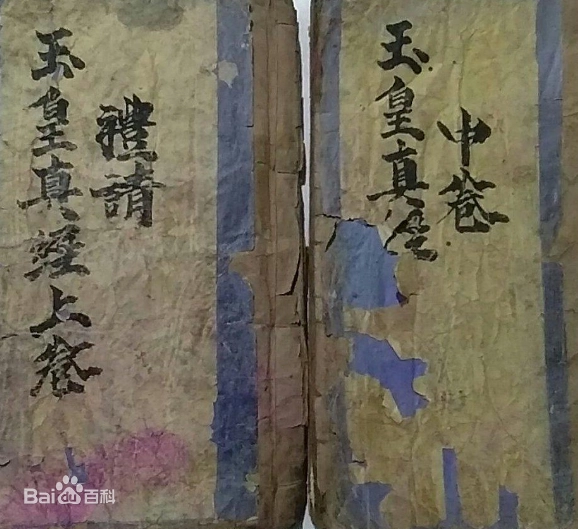 玉皇真經上卷
禮請
玉皇真
中卷
Bai百科